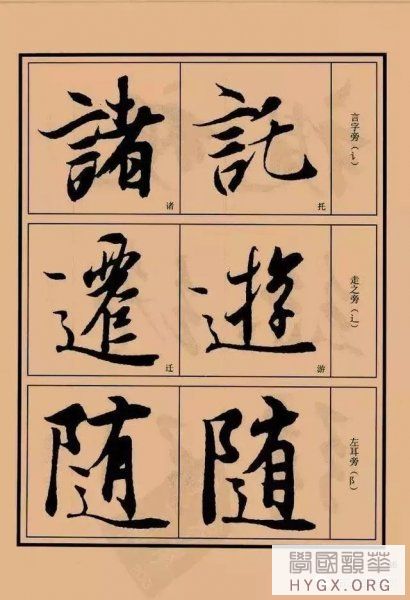 言字旁（讠）
託
托
諸
诸
走之旁（辶）
遊
游
遷
迁
左耳旁（阝）
随
随
華韻國學
HYGX.ORG